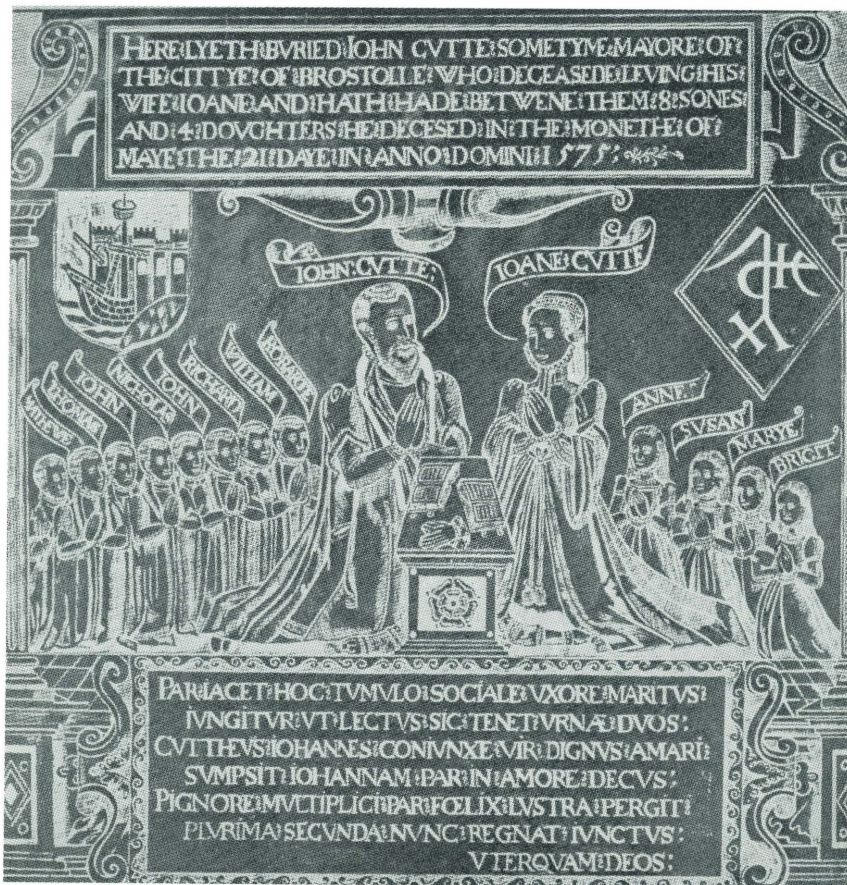 HERE⁝LYETH⁝BVRIED⁝IOHN CVTTE⁝SOMETYME⁝MAYORE⁝OF⁝
THE⁝CITTYE⁝OF⁝BROSTOLLE⁝WHO⁝DECEASEDE⁝LEVING⁝HIS⁝
WIFE⁝IOANE⁝AND⁝HATH⁝HADE⁝BETWENE⁝THEM⁝8⁝SONES⁝
AND⁝4⁝DOVGHTERS⁝HE⁝DECESED⁝IN⁝THE⁝MONETHE⁝OF⁝
MAYE⁝THE⁝21⁝DAYE⁝IN⁝ANNO⁝DOMINI⁝1575⁝
IOHN⁝CVTTE⁝
IOANE⁝CVTTE
THOMAS
IOHN
NICHOLAS
IOHN
RICHARD
WILLIAM
ROBARTE
ANNE⁝
SVSAN
MARYE
BRIGIT
PAR⁝IACET⁝HOC⁝TVMVLO⁝SOCIALE⁝VXORE⁝MARITVS⁝
IVNGITVR⁝VT⁝LECTVS⁝SIC⁝TENET⁝VRNA⁝DVOS⁝
CVTTEVS⁝IOHANNES⁝CONIVNXE⁝VIR⁝DIGNVS⁝AMARI⁝
SVMPSIT⁝IOHANNAM⁝PAR⁝IN⁝AMORE⁝DECVS⁝
PIGNORE⁝MVLTIPLICI⁝PAR⁝FŒLIX⁝LVSTRA⁝PERGIT⁝
PLVRIMA⁝SECVNDA⁝NVNC⁝REGNAT⁝IVNCTVS⁝
VTERQVAM⁝DEOS⁝